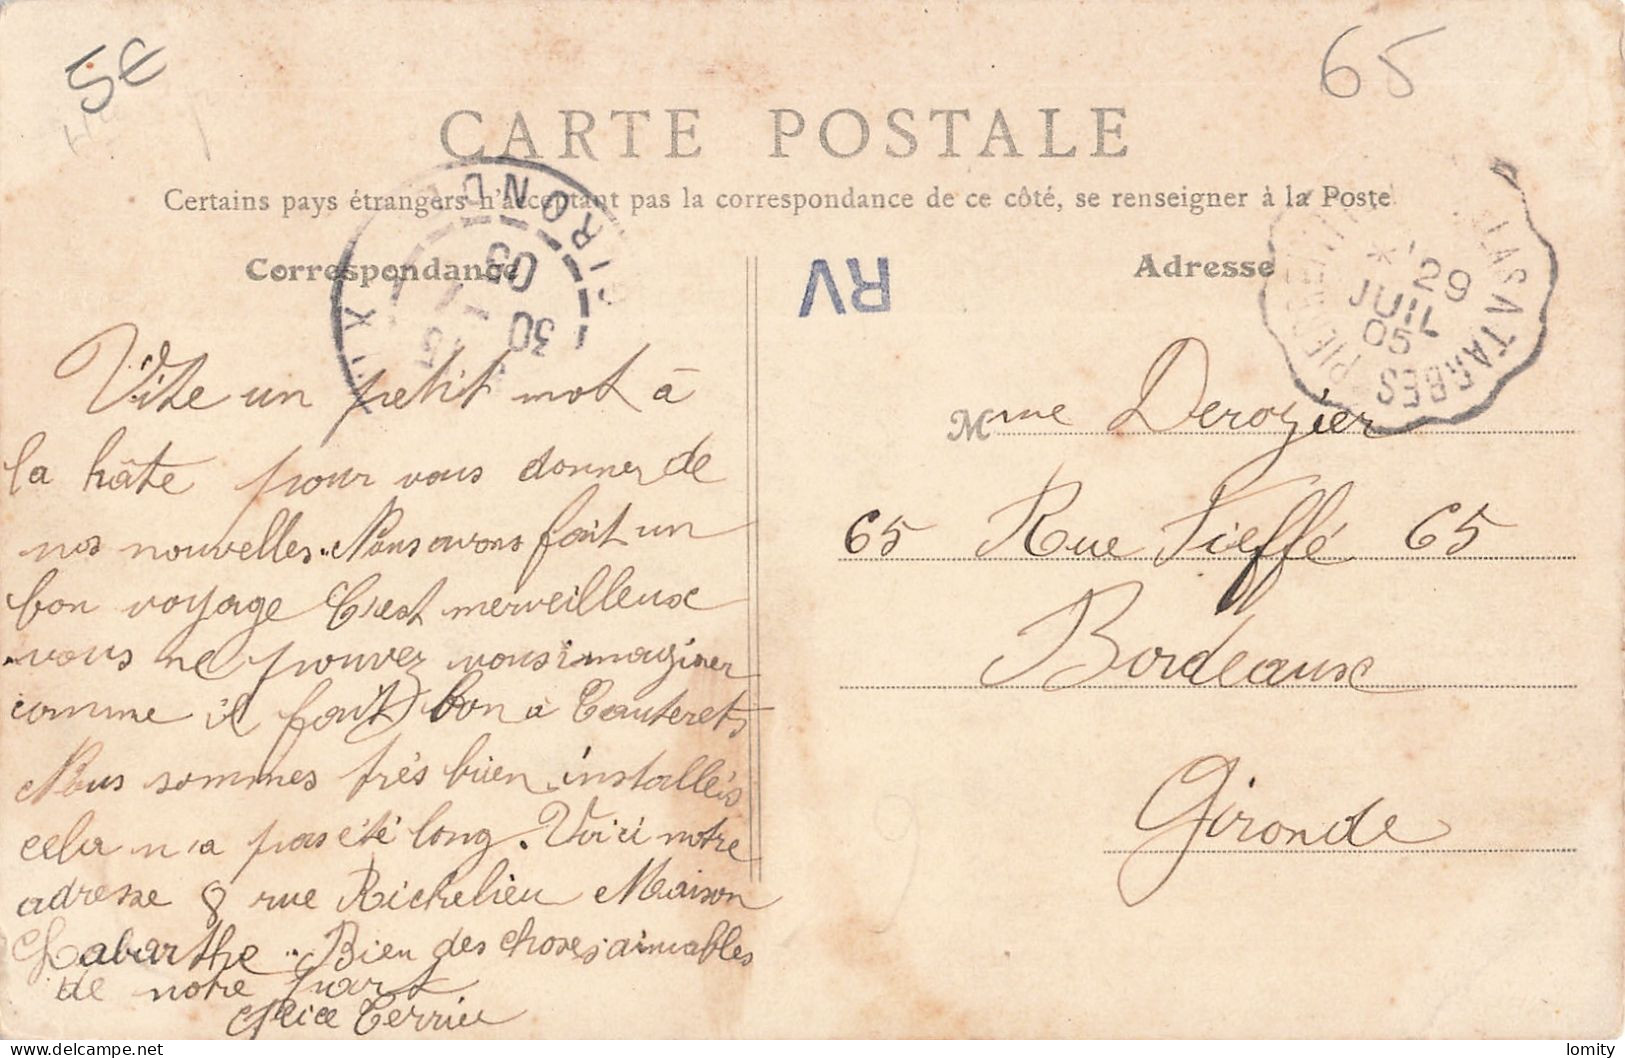 5€
65
CARTE POSTALE
Certains pays étrangers n'acceptant pas la correspondance de ce côté, se renseigner à la Poste
Correspondance
Adresse
RV
GIRONDE
30
05
PIERREFITTE
LAS A TARBES
29
JUIL
05
Vite un petit mot à
la hâte pour vous donner de
nos nouvelles. Nous avons fait un
bon voyage C'est merveilleux
vous ne pouvez vous imaginer
comme il fait bon à Cauterets
Nous sommes très bien installés
cela n'a pas été long. Voici notre
adresse 8 rue Richelieu Maison
Labarthe.. Bien des choses aimables
de notre part
Terrier
Mme Derozier
65 Rue Fieffé 65
Bordeaux
Gironde
delcampe.net
lomity